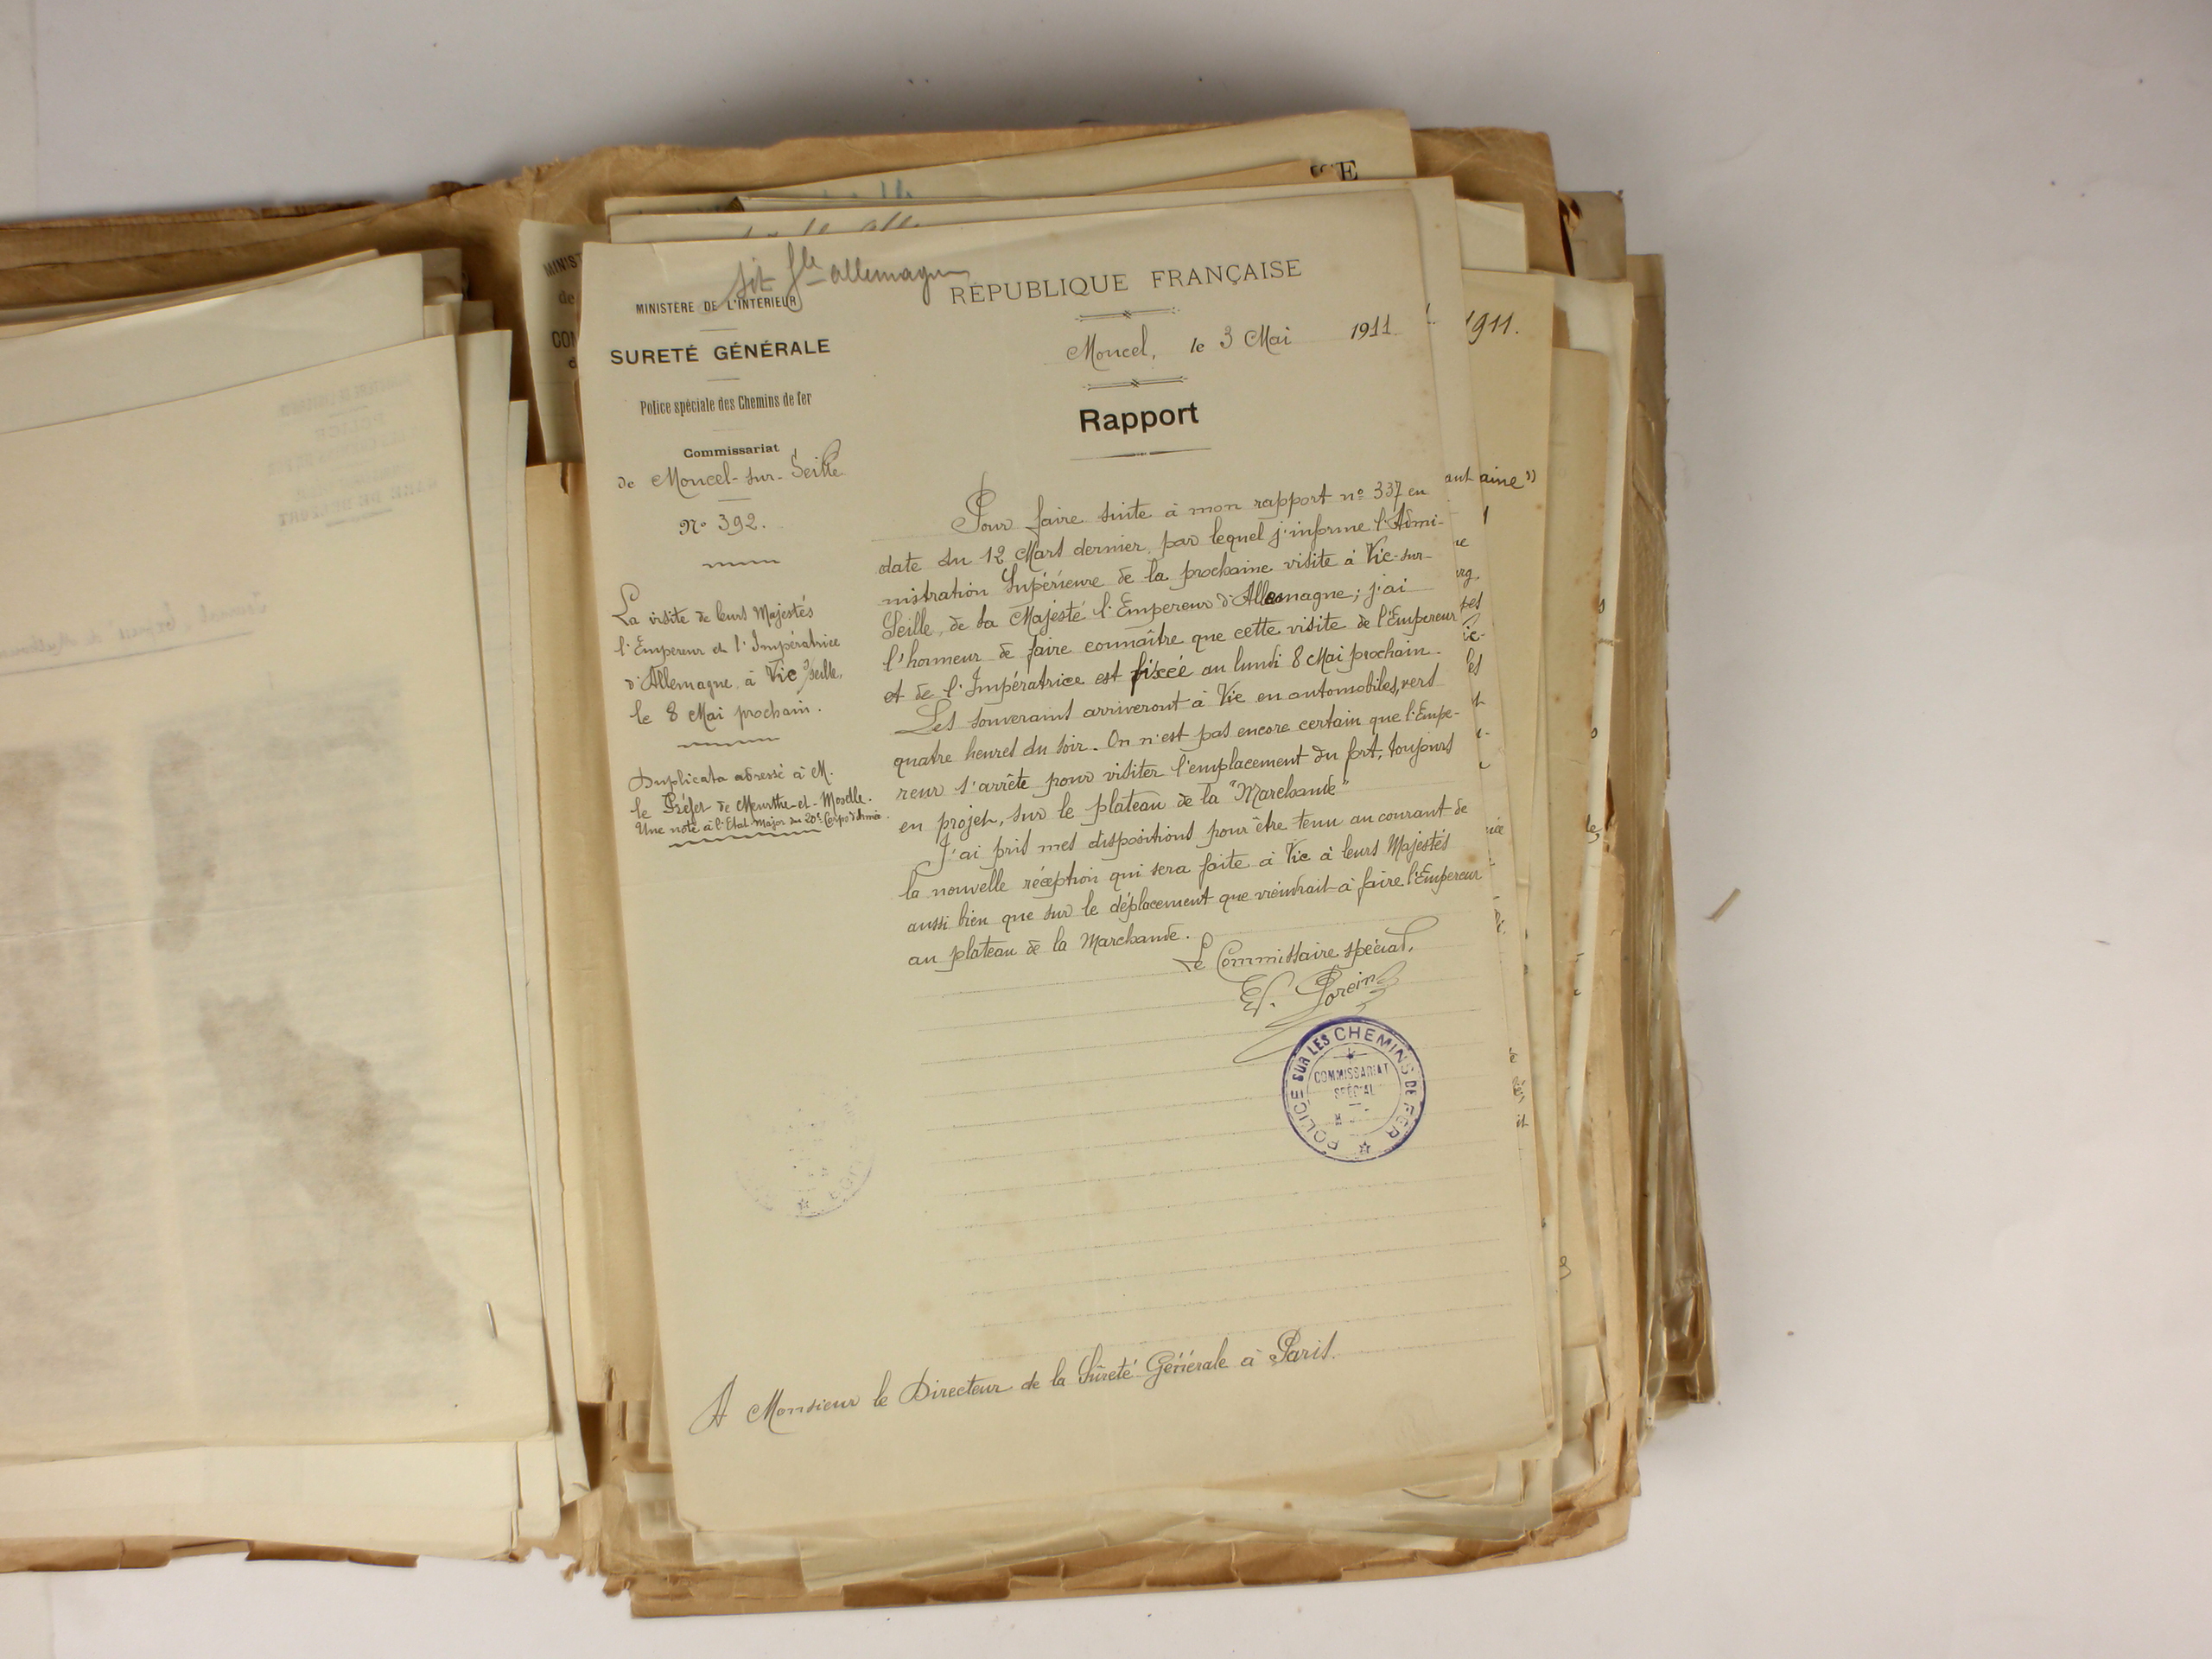 Sit Gle allemagne
MINISTÈRE DE L'INTÉRIEUR
SURETÉ GÉNÉRALE
Police spéciale des Chemins de fer
Commissariat
de Moncel-sur-Seille
No 392.
La visite de leurs Majestés
l'Empereur et l'Impératrice
d'Allemagne à Vic s/Seille,
le 8 Mai prochain.
Duplicata adressé à M.
le Préfet de Meurthe-et-Moselle.
Une note à l'Etat-Major du 20e Corps d'Armée.
RÉPUBLIQUE FRANÇAISE
Moncel, le 3 Mai 1911
Rapport
Pour faire suite à mon rapport no 337 en
date du 12 Mars dernier par lequel j'informe l'Admi-
nistration Supérieure de la prochaine visite à Vic-sur-
Seille, de Sa Majesté l'Empereur d'Allemagne; j'ai
l'honneur de faire connaître que cette visite de l'Empereur
et de l'Impératrice est fixée au lundi 8 Mai prochain.
Les souverains arriveront à Vic en automobiles, vers
quatre heures du soir. On n'est pas encore certain que l'Empe-
reur s'arrête pour visiter l'emplacement du fort, toujours
en projet, sur le plateau de la "Marchande"
J'ai pris mes dispositions pour être tenu au courant de
la nouvelle réception qui sera faite à Vic à leurs Majestés
aussi bien que sur le déplacement que viendrait à faire l'Empereur
au plateau de la Marchande.
Le Commissaire spécial,
POLICE SUR LES CHEMINS DE FER
COMMISSARIAT
SPÉCIAL
A Monsieur le Directeur de la Sûreté Générale à Paris.
1911.